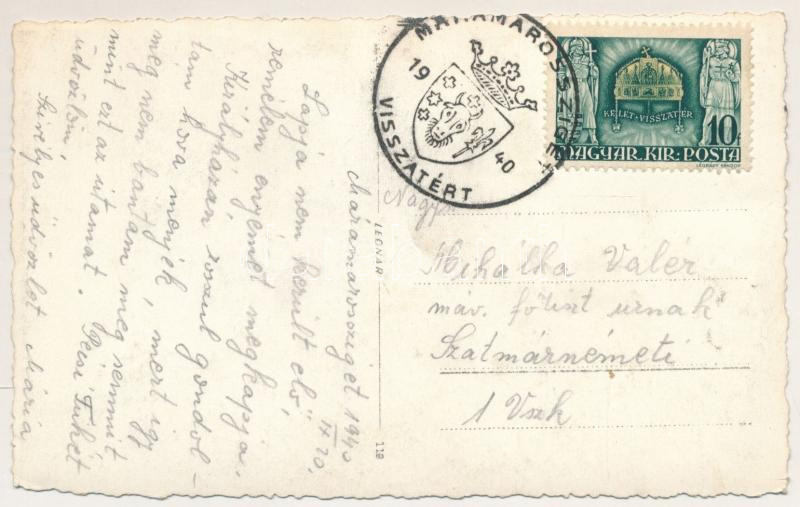 MÁRAMAROSSZIGET
19 40
VISSZATÉRT
KELET·VISSZATÉR
10f
MAGYAR·KIR·POSTA
LÉGRÁDY SÁNDOR
LEONAR
119
Máramarossziget 1940
IX 20.
Lapja nem került elő,
remélem enyémet megkapja.
Királyházán rosszul gondol-
tam hova menjek, mert így
még nem bántam meg semmit
mint ezt az utamat.
üdvözlöm,
Szivélyes üdvözlet Mária
Nagys.
Mihálka Valér
máv. főtiszt urnak
Szatmárnémeti
1 Vszk